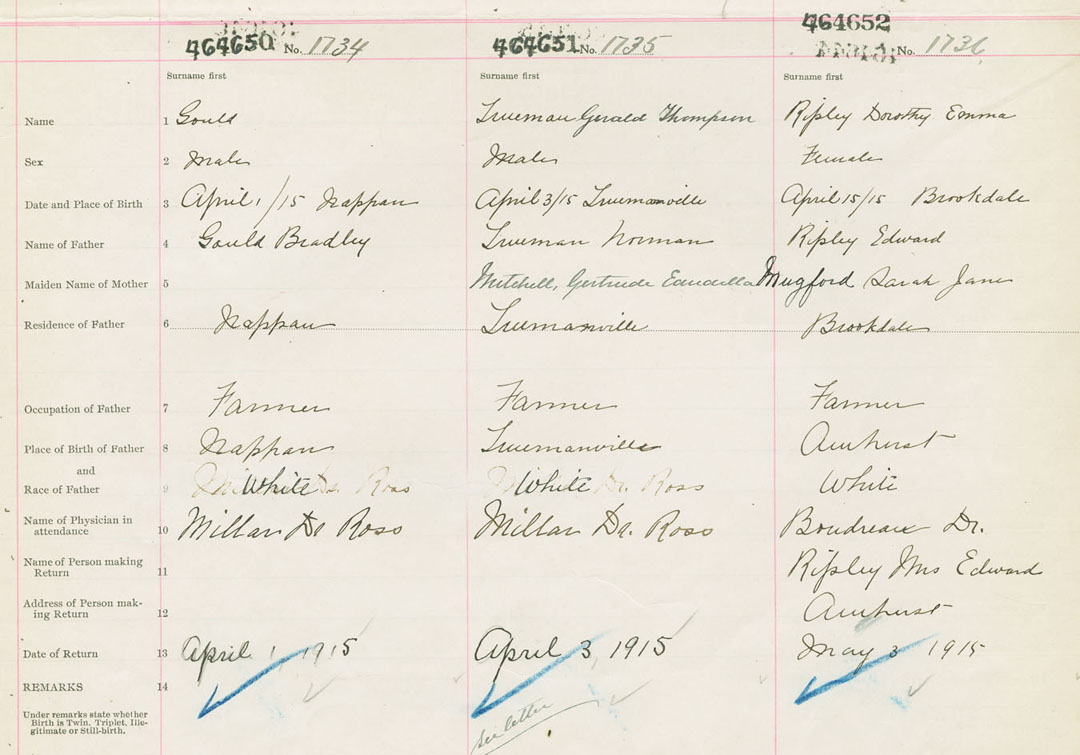 464650 No. 1734 464651 No. 1735 464652 No. 1736
Surname first Surname first Surname first
Name 1 Gould Trueman Gerald Thompson Ripley Dorothy Emma
Sex 2 Male Male Female
Date and Place of Birth 3 April 1/15 Nappan April 3/15 Truemanville April 15/15 Brookdale
Name of Father 4 Gould Bradley Trueman Norman Ripley Edward
Maiden Name of Mother 5 Mitchell, Gertrude Mugford Sarah Jane
Residence of Father 6 Nappan Truemanville Brookdale
Occupation of Father 7 Farmer Farmer Farmer
Place of Birth of Father 8 Nappan Truemanville Amherst
and
Race of Father 9 White Dr. Ross White Dr. Ross White
Name of Physician in
attendance 10 Millar Dr Ross Millar Dr. Ross Boudreau Dr.
Name of Person making
Return 11 Ripley Mrs Edward
Address of Person mak-
ing Return 12 Amherst
Date of Return 13 April 1 1915 April 3, 1915 May 3 1915
REMARKS 14
Under remarks state whether
Birth is Twin, Triplet, Ille-
gitimate or Still-birth.
see letter